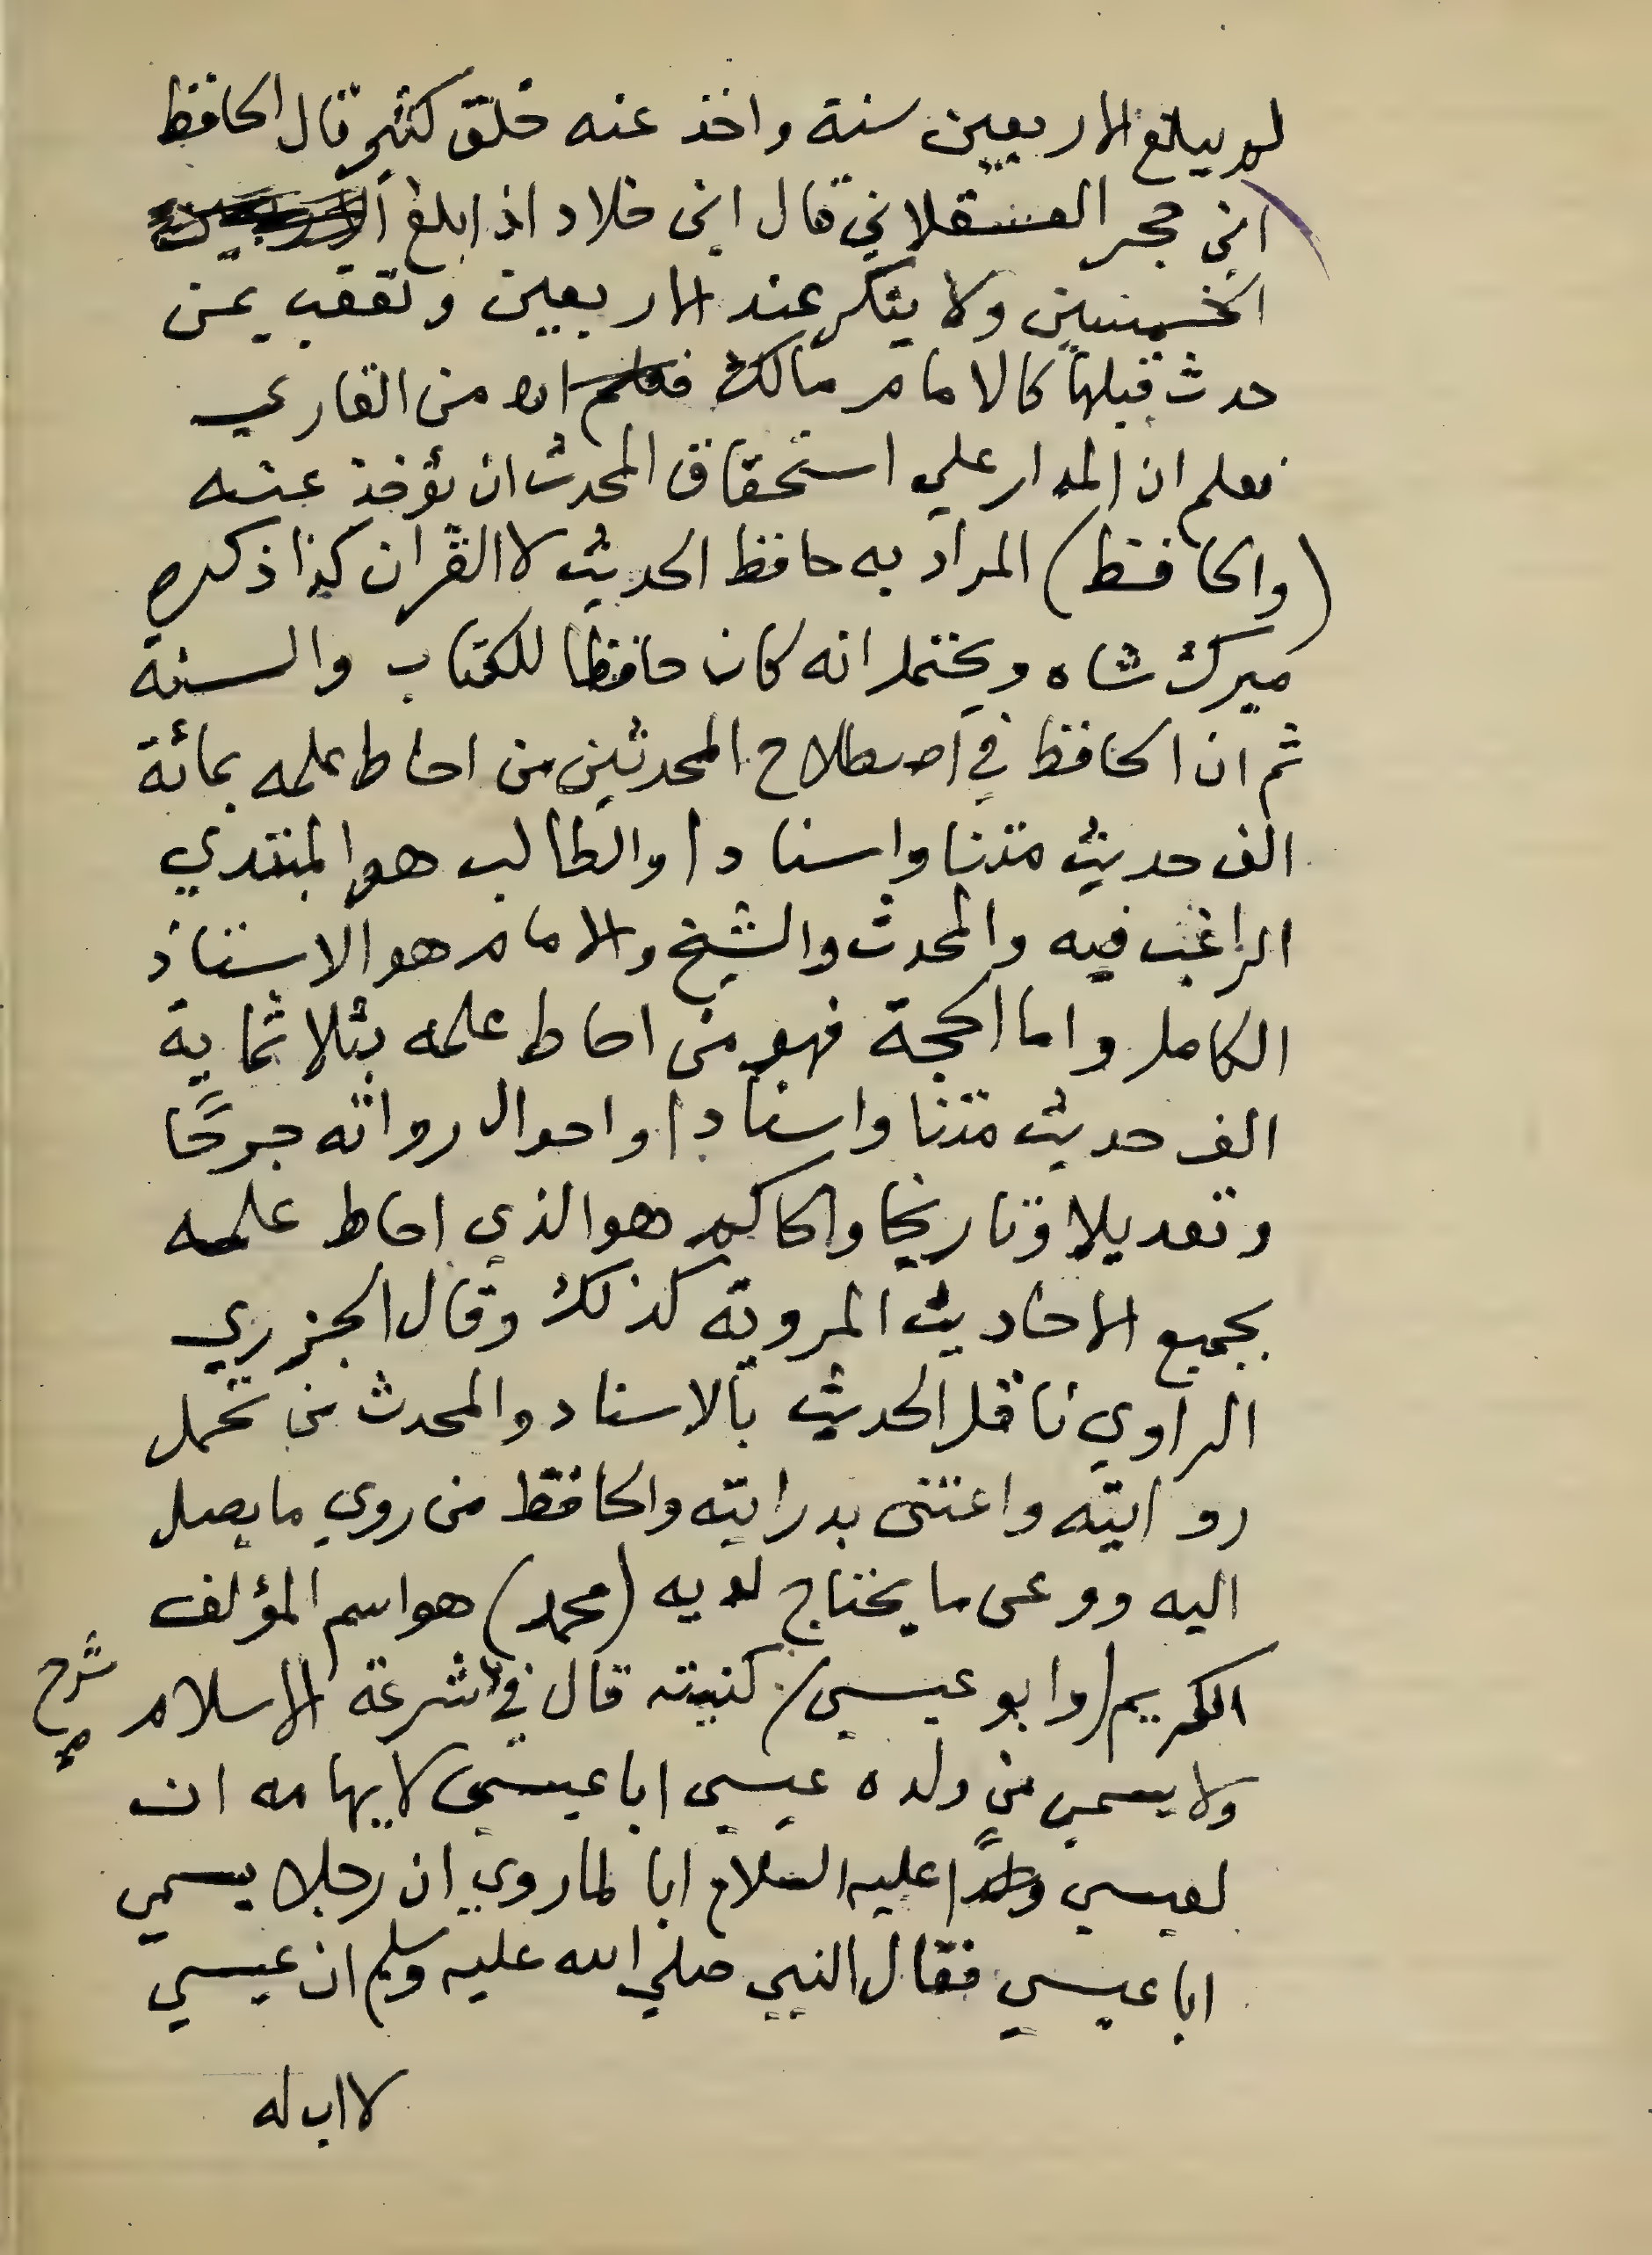 لم يبلغ الاربعين سنة واخذ عنه خلق كثير قال الحافظ
ابن حجر العسقلاني قال ابن خلاد اذا بلغ
الخمسين ولا ينكر عند الاربعين وتعقب بمن
حدث قبلها كالامام مالك اه من القاري
فعلم ان المدار علي استحقاق المحدث ان يؤخذ عنه
(والحافظ) المراد به حافظ الحديث لا القران كذا ذكره
ميرك شاه ويحتمل انه كان حافظا للكتاب والسنة
ثم ان الحافظ في اصطلاح المحدثين من احاط علمه بمائة
الف حديث متنا واسنادا والطالب هو المبتدي
الراغب فيه والمحدث والشيخ والامام هو الاستاذ
الكامل واما الحجة فهو من احاط علمه بثلاثماية
الف حديث متنا واسنادا واحوال رواته جرحًا
وتعديلا وتاريخا والحاكم هو الذي احاط علمه
بجميع الاحاديث المروية كذلك وقال الجزري
الراوي ناقل الحديث بالاسناد والمحدث من تحمل
روايته واعتنى بدرايته والحافظ من روي ما يصل
اليه ووعى ما يحتاج لديه (محمد) هو اسم المؤلف
الكريم (وابو عيسي) كنيته قال في شرعة الاسلام
شرح
صح
ولا يسمي من ولده عيسي ابا عيسى لايهامه ان
لعيسي عليه السلام ابا لما روي ان رجلا يسمي
ابا عيسي فقال النبي صلي الله عليه وسلم ان عيسي
لا اب له